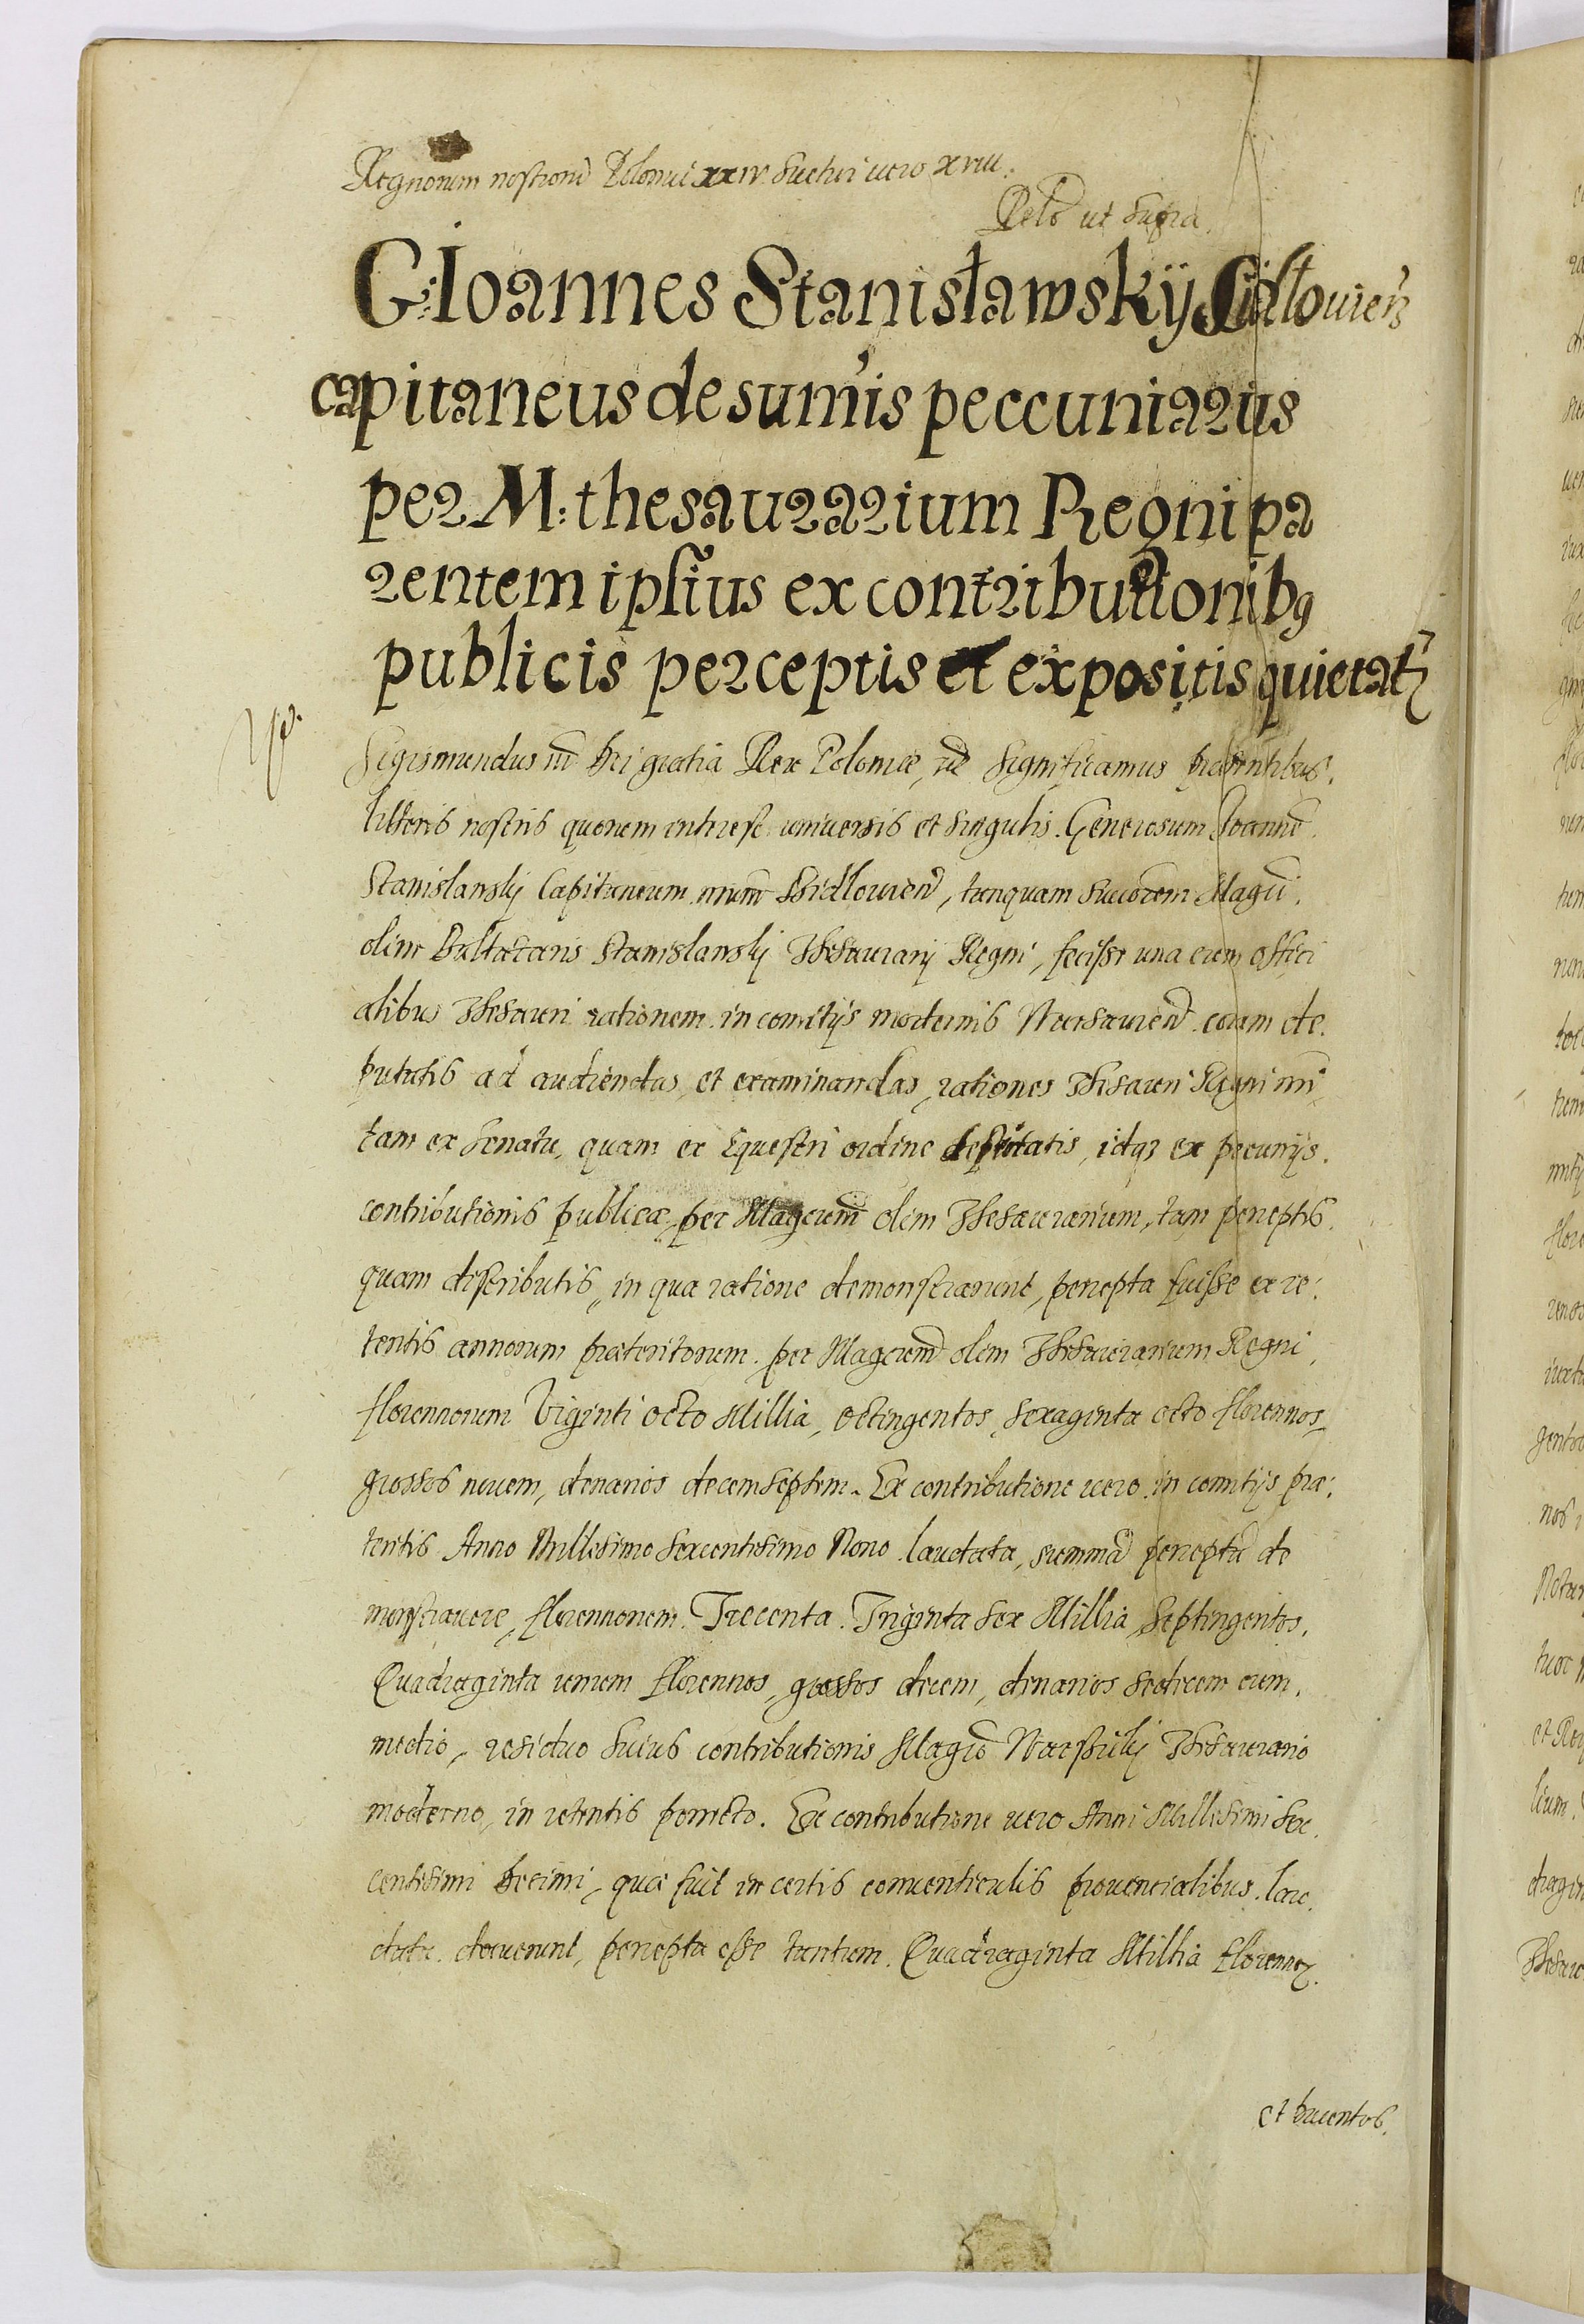 Regnorum nostrorũ Poloniei xxiv. Suetici vero xviii.
Relõ ut supra.
G: Ioannes Stanisławskÿ Sidłouien̄
capitaneus de sum̃is peccuniariis
per M: thesaurarium Regni pa
rentem ipsius ex contributionibꝯ
publicis perceptis et expositis quietat̃
Sigismundus iii Dei gratia Rex Poloniæ, etc̃ Significamus præsentibus.
litteris nostris quorum interest universis et singulis. Generosum Joannẽ.
Stanislawskij Capitaneum nr̃um Shidlouieñ, tanquam successorem Magci.
olim Baltazaris Stanislawskij Thesaurarij Regni, fecisse una cum offici
alibus Thesauri rationem in comitijs modernis Warsavieñ coram de
putatis ad audiendas et examinandas, rationes Thesauri Regni nr̃i
tam ex Senatu, quam ex Equestri ordine deputatis, idqꝫ ex pecunijs.
contributionis publicæ, per Magcum̃ olim Thesaurarium, tam perceptis.
quam distributis, in qua ratione demonstrarunt, percepta fuisse ex re:
tentis annorum præteritorum. per Magcum̃ olim Thesaurarium Regni,
florennorum Viginti octo Millia, octingentos, sexaginta octo florennos,
grossos novem, denarios decemseptem. Ex contributione vero in comitijs præ:
teritis Anno Millesimo Sexcentesimo Nono laudata, summã perceptã de
monstravere, florennorum. Trecenta. Triginta sex Millia, Septingentos,
Quadraginta unum florennos, grossos decem, denarios sedecem cum.
medio, residuo huius contributionis Magcõ Warszickij Thesaurario
moderno, in retentis porrecto. Ex contributione vero Anni Millesimi Sex.
centesimi Decimi, quæ fuit in certis conventiculis provincialibus. lau.
data. docuerunt, percepta esse tantum. Quadraginta Millia florennoꝝ.
et ducentos.